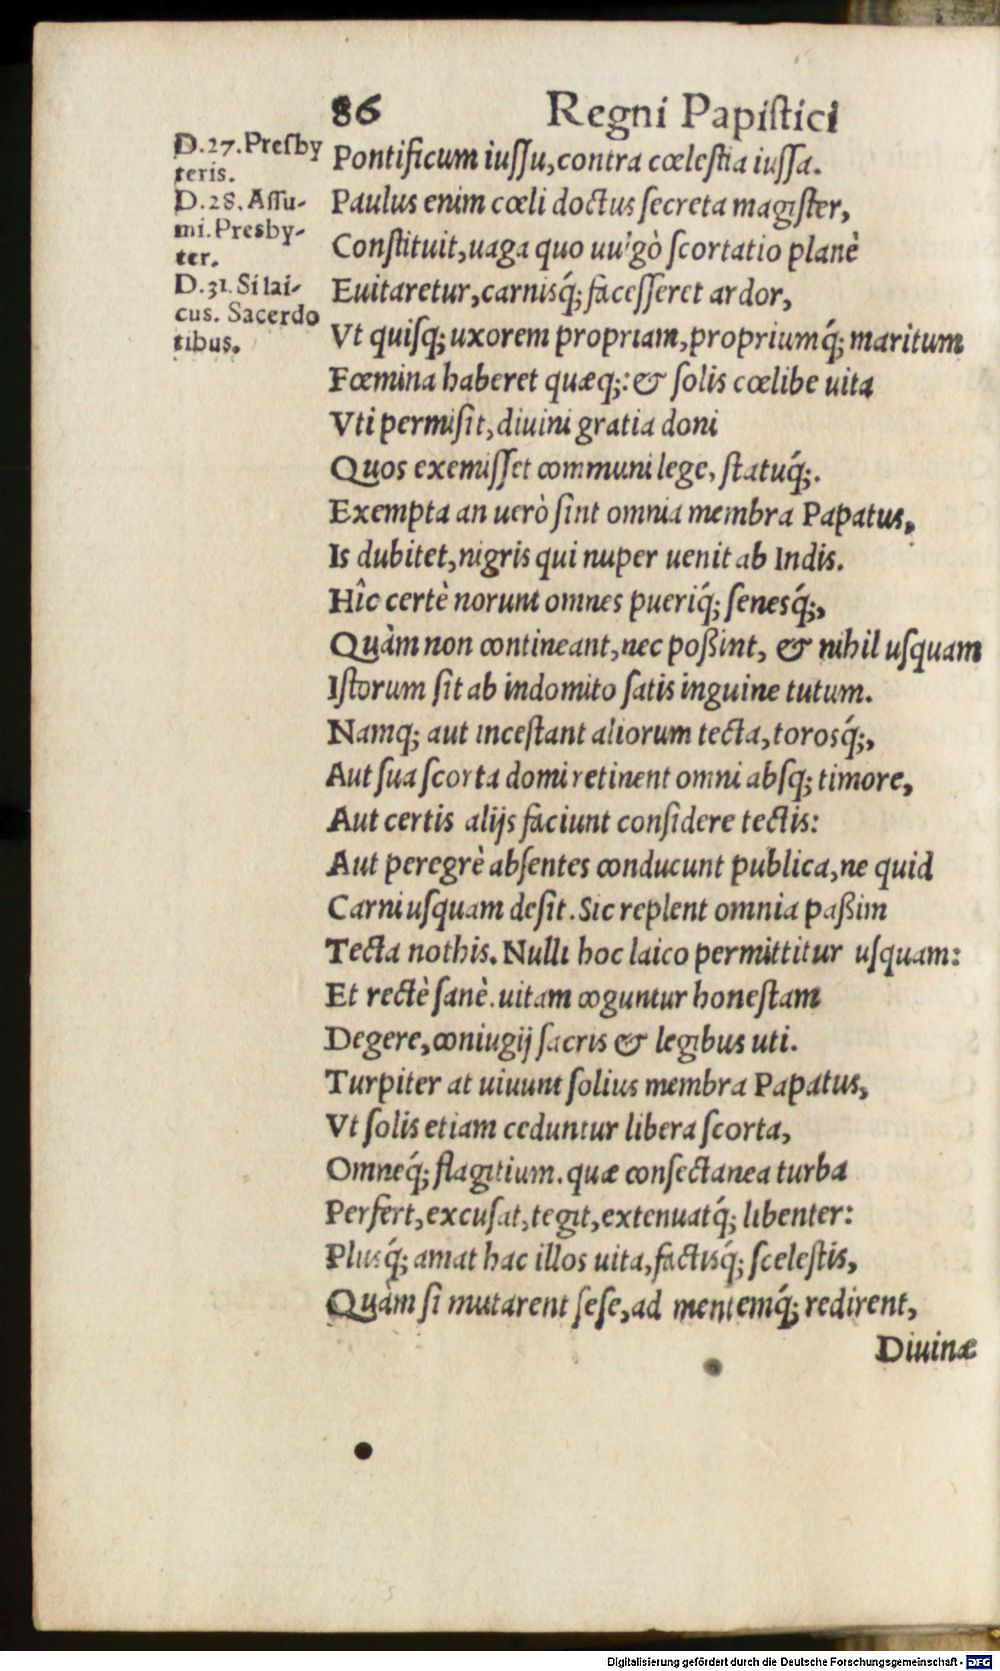 86 Regni Papiſtici
D.27. Preſby
teris.
D.28. Aſſu-
mi. Presby-
ter.
D.31. Si lai-
cus. Sacerdo
tibus.
Pontificum iuſſu, contra cœleſtia iuſſa.
Paulus enim cœli doctus ſecreta magiſter,
Conſtituit, uaga quo uulgò ſcortatio planè
Euitaretur, carnisq́; faceſſeret ardor,
Vt quiſq; uxorem propriam, propriumq́; maritum
Fœmina haberet quæq;: & ſolis cœlibe uita
Vti permiſit, diuini gratia doni
Quos exemiſſet communi lege, ſtatuq́;.
Exempta an uerò ſint omnia membra Papatus,
Is dubitet, nigris qui nuper uenit ab Indis.
Hîc certè norunt omnes pueriq́; ſenesq́;,
Quàm non contineant, nec poßint, & nihil uſquam
Iſtorum ſit ab indomito ſatis inguine tutum.
Namq; aut inceſtant aliorum tecta, torosq́;,
Aut ſua ſcorta domi retinent omni abſq; timore,
Aut certis alijs faciunt conſidere tectis:
Aut peregrè abſentes conducunt publica, ne quid
Carni uſquam deſit. Sic replent omnia paßim
Tecta nothis. Nulli hoc laico permittitur uſquam:
Et rectè ſanè. uitam coguntur honeſtam
Degere, coniugij ſacris & legibus uti.
Turpiter at uiuunt ſolius membra Papatus,
Vt ſolis etiam ceduntur libera ſcorta,
Omneq́; flagitium. quæ conſectanea turba
Perfert, excuſat, tegit, extenuatq́; libenter:
Plusq́; amat hac illos uita, factisq́; ſceleſtis,
Quàm ſi mutarent ſeſe, ad mentemq́; redirent,
Diuinæ
Digitalisierung gefördert durch die Deutsche Forschungsgemeinschaft - DFG